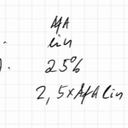 AfA
lin
25%
2,5xAfA lin